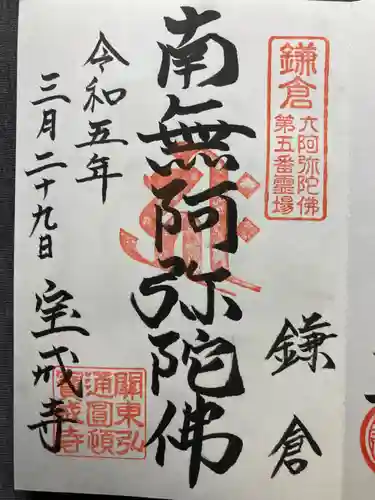 鎌倉
六阿弥陀佛
第五番霊場
鎌倉
南無阿弥陀佛
令和五年
三月二十九日
宝戒寺
關東弘
通圓頓
寳戒寺